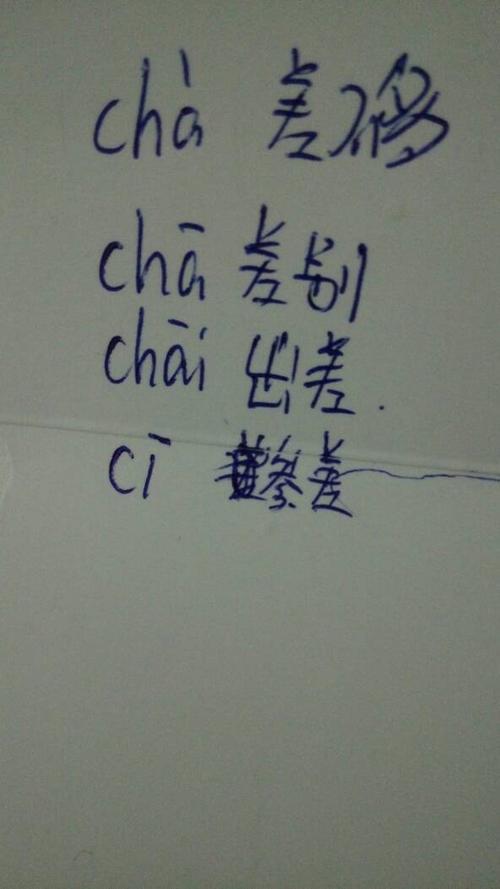 chà 差不多
chā 差别
chāi 出差.
cī 参差